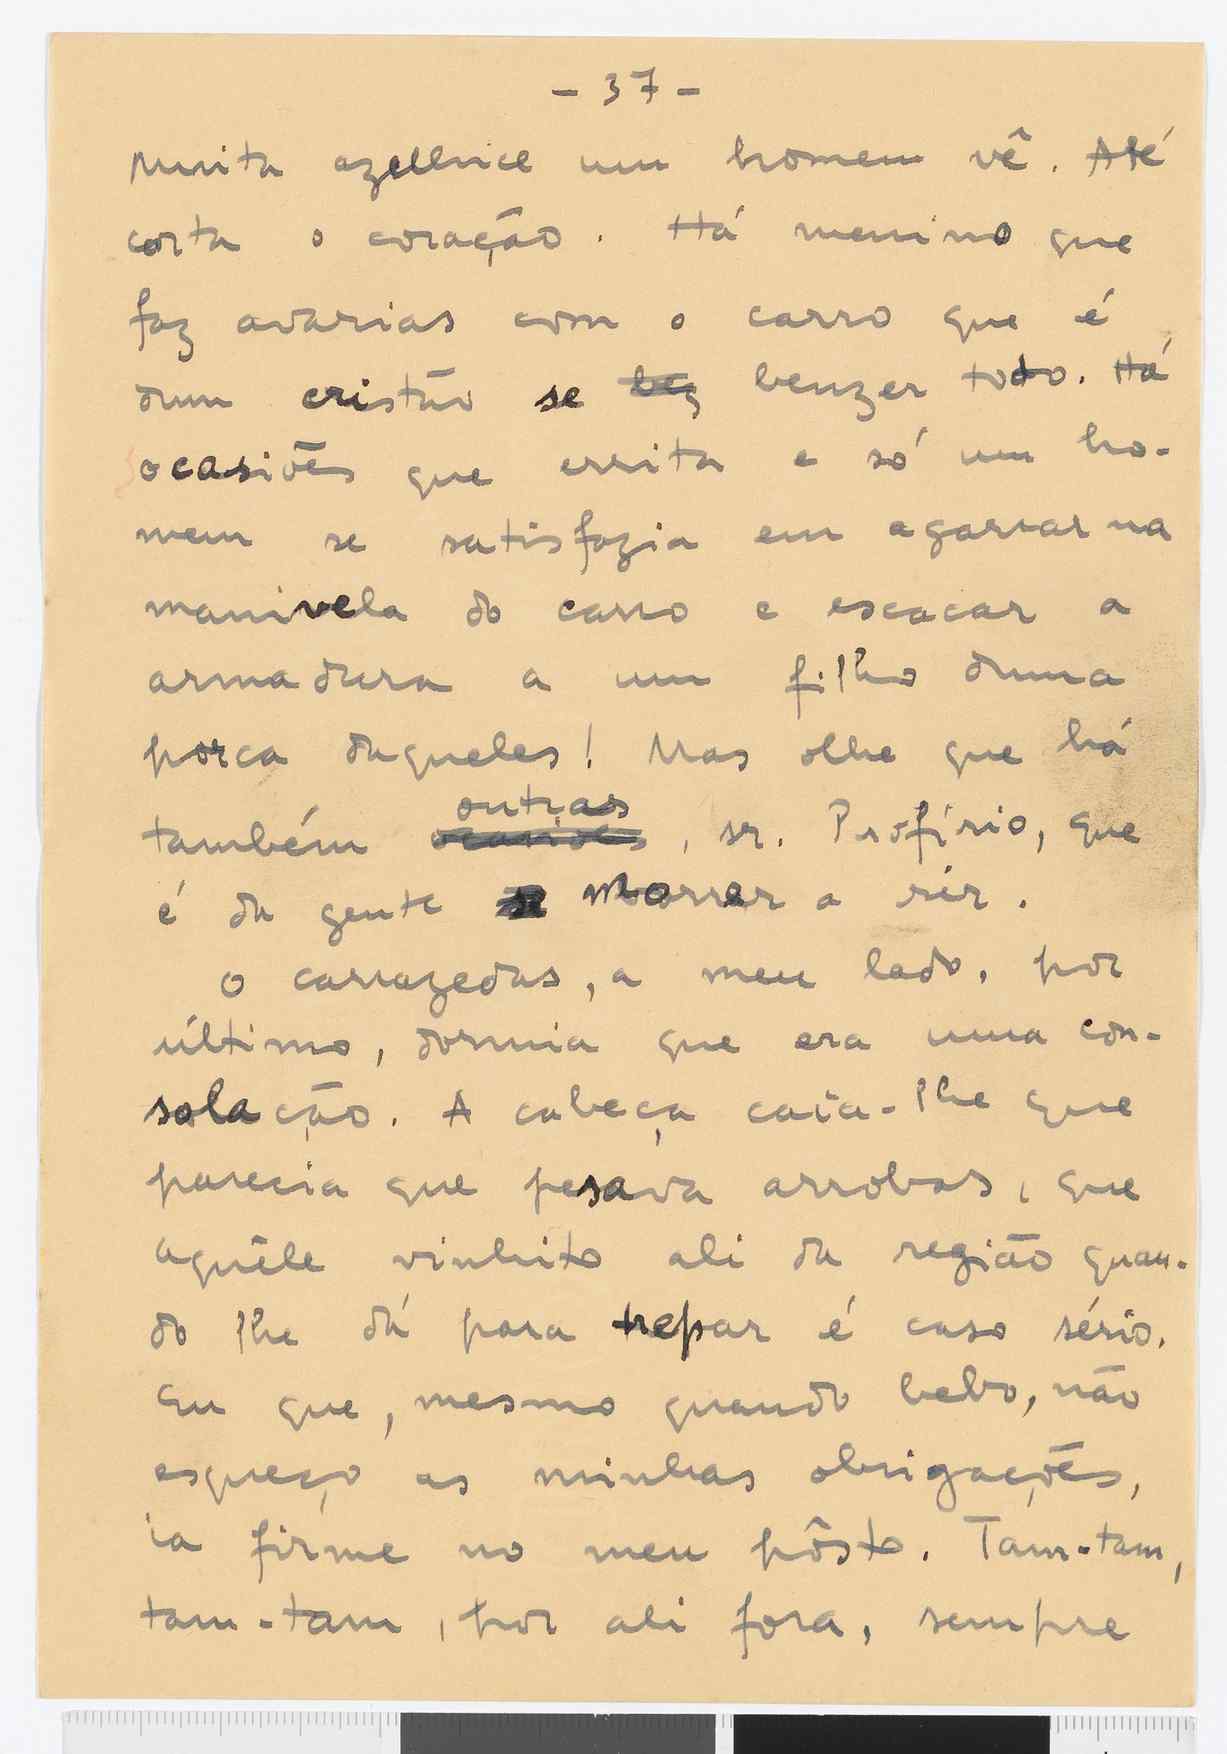 - 37 -
Muita azellnice um homem vê. Até
corta o coração. Há menino que
faz avarias com o carro que é
dum cristão se bez benzer todo. Há
ocasiões que errita e só um ho-
mem se satisfazia em agarrar na
manivela do carro e escacar a
armadura a um filho duma
porca daqueles! Mas olhe que há
outras
também ocasiões, sr. Profírio, que
é da gente se morrer a rir.
O carrazedas, a meu lado, por
último, dormia que era uma con-
solação. A cabeça caía-lhe que
parecia que pesava arrobas, que
aquêle vinhito ali da região quan-
do lhe dá para trepar é caso sério.
Eu que, mesmo quando bebo, não
esqueço as minhas obrigações,
ia firme no meu pôsto. Tam-tam,
tam-tam, por ali fora, sempre